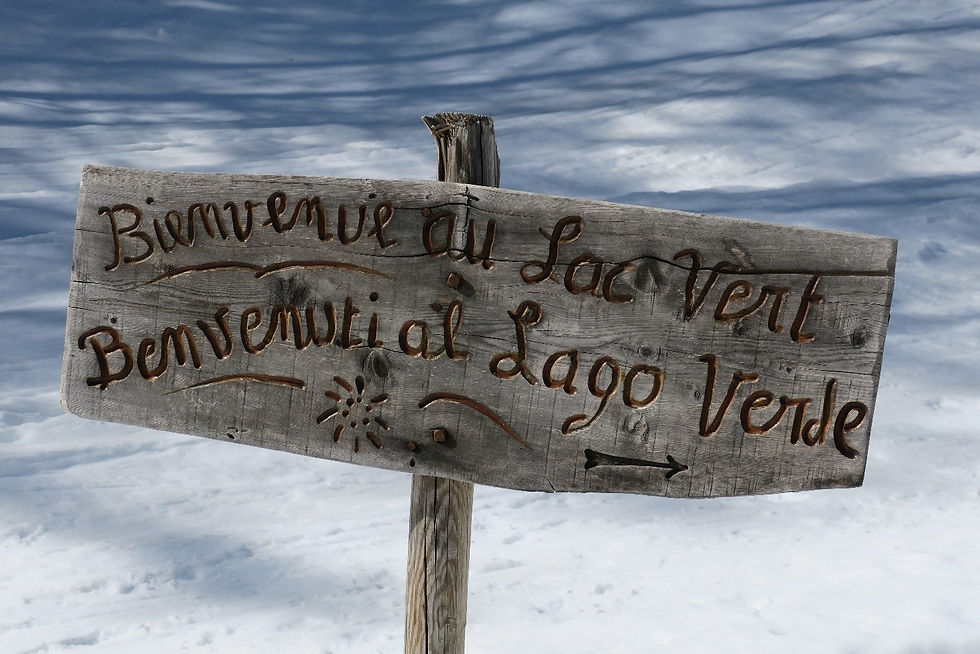 Bienvenue au Lac Vert
Benvenuti al Lago Verde